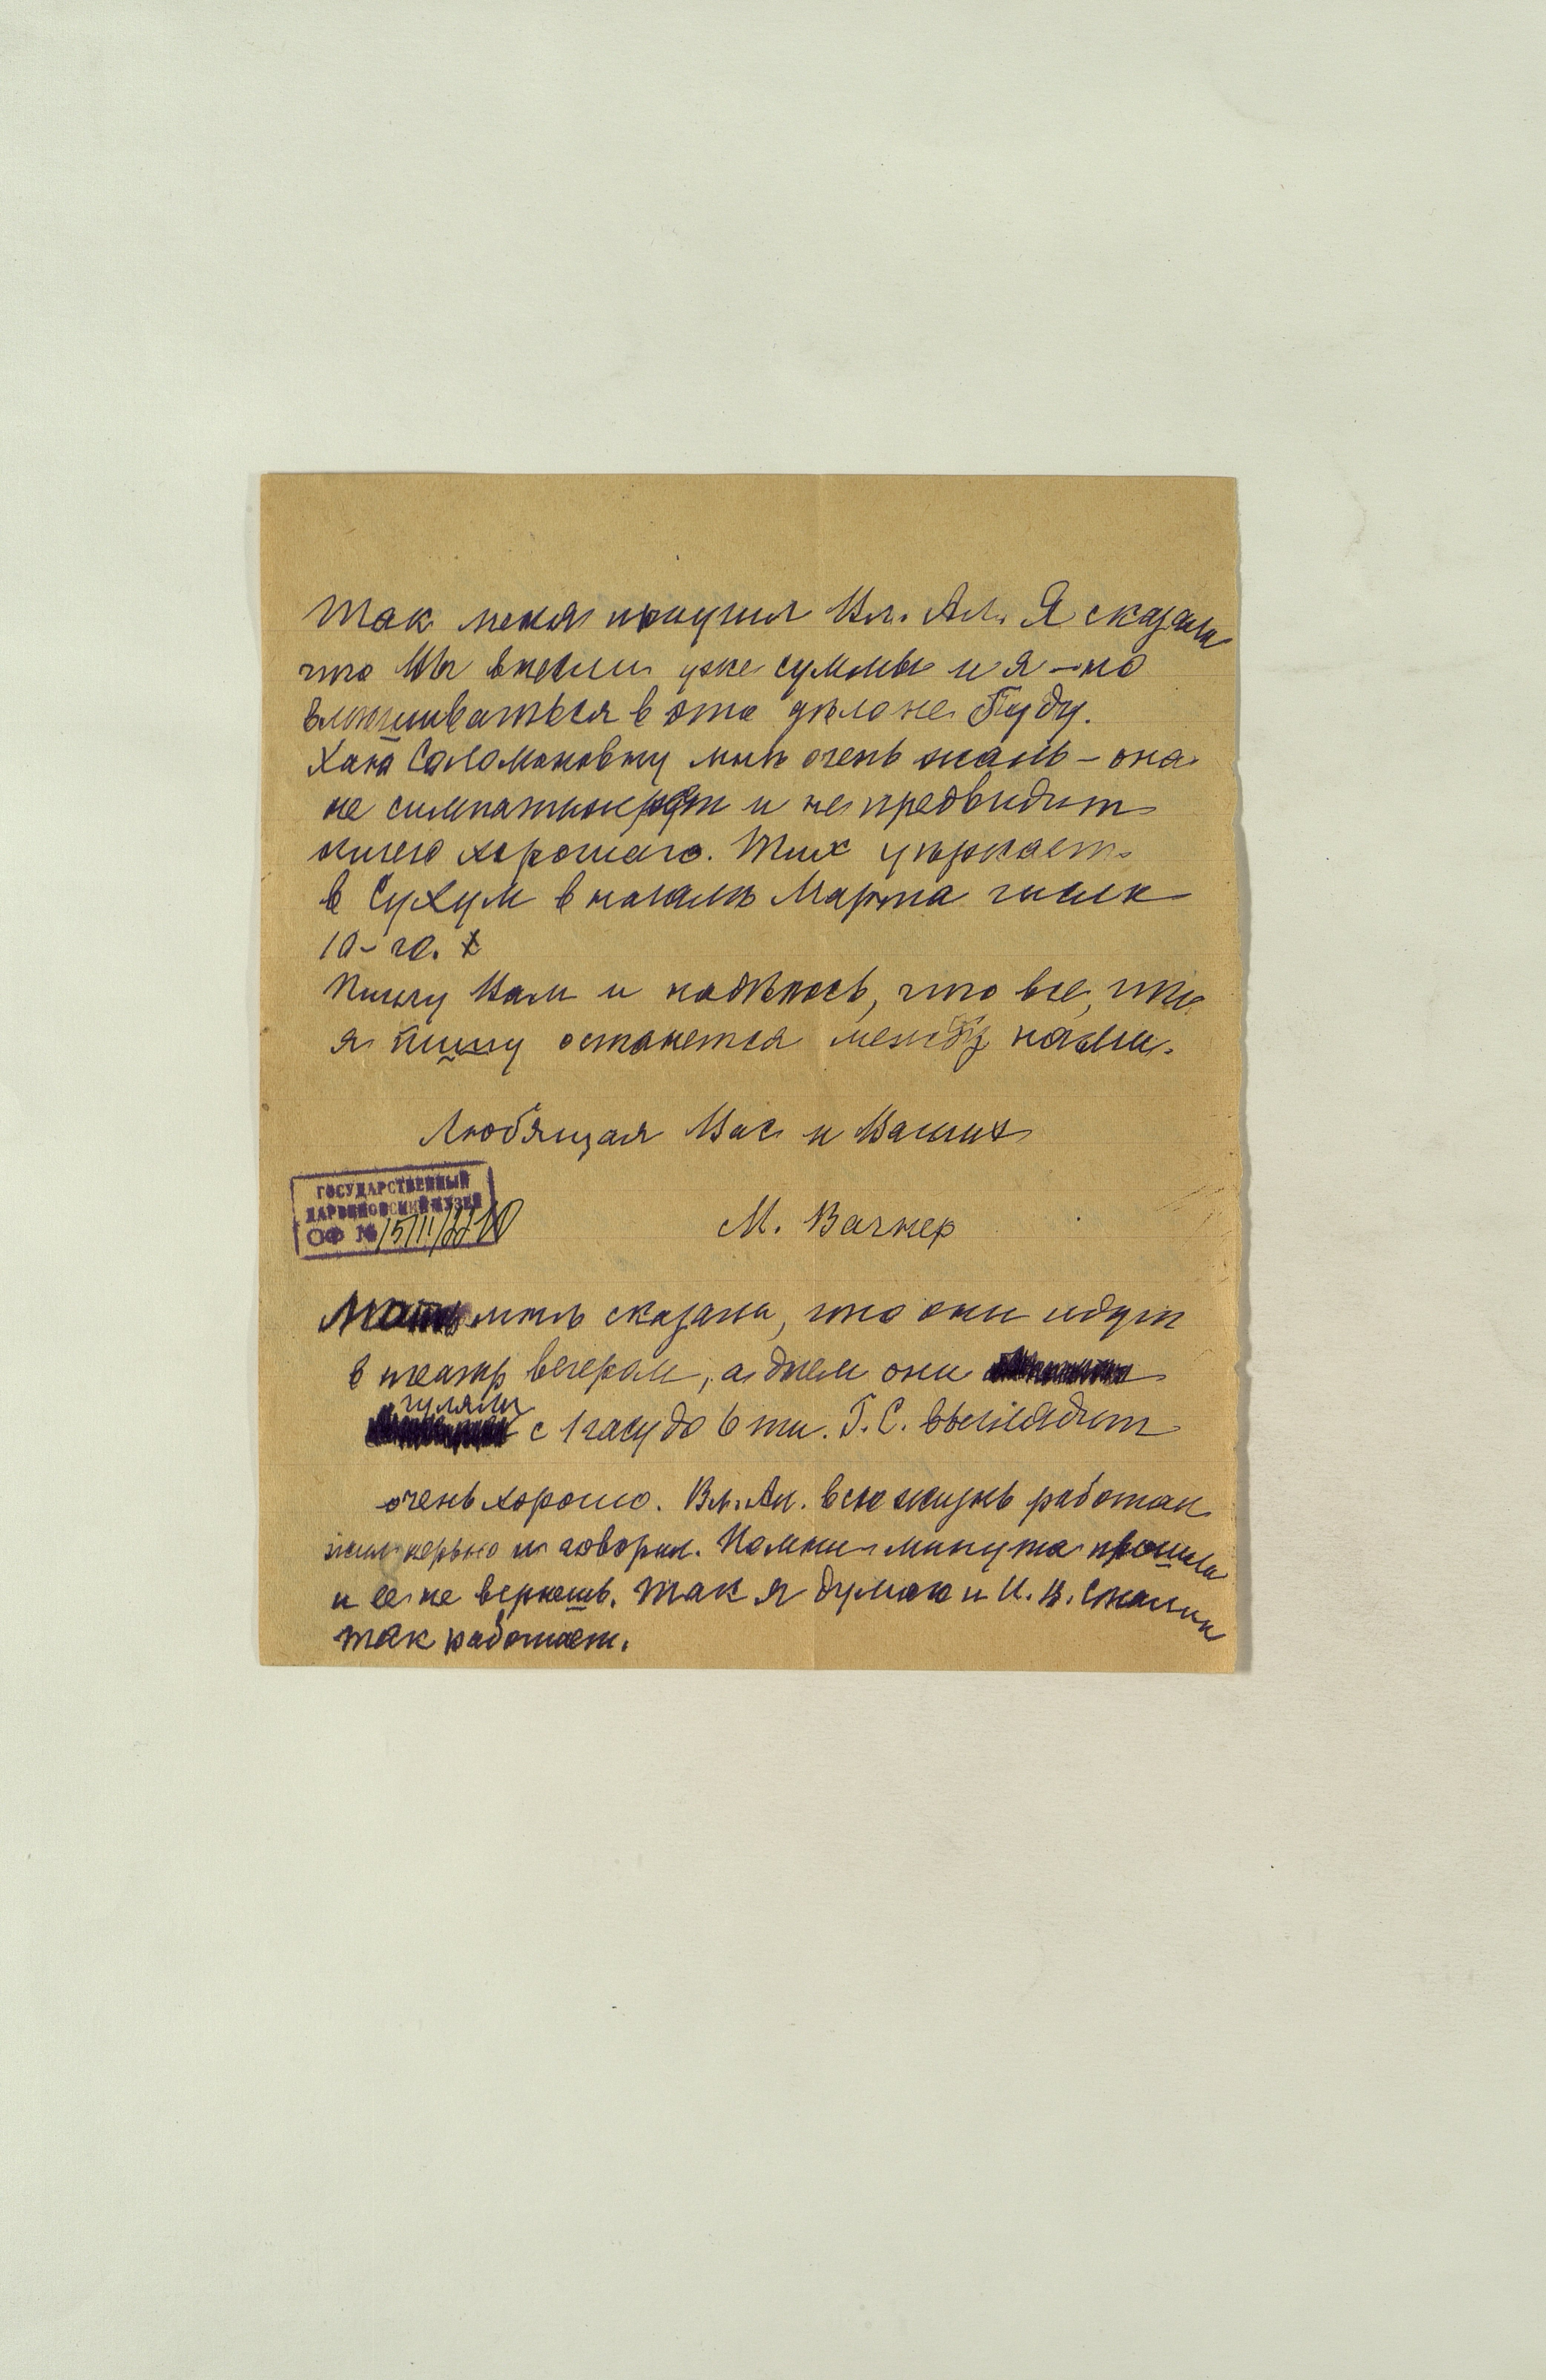 Так меня поучил Вл. Ал. Я сказала
что Вы внесли уже суммы и я - но
вмешиваться в это дѣло не буду.
Хана Соломоновну мнѣ очень жаль - она
не и не предвидит
ничего хорошаго. Тих уѣзжает
в Сухум в началѣ Марта числ
10-го.
Пишу Вам и надѣюсь, что все, что
я пишу останется между нами.
Любящая Вас и Ваших
М. Вагнер
ГОСУДАРСТВЕННЫЙ
ДАРВИНОВСКИЙ МУЗЕЙ
ОФ № 15111/2210
мнѣ сказала, что они идут
в театр вечером, а днем они
гуляли
с 1 часу до 6 ти. Г. С. выглядит
очень хорошо. Вл. Ал. всю жизнь работал
нервно и говорил. Помни минута прошла
и ее не вернешь. Так я думаю и И. В. Сталин
так работает.